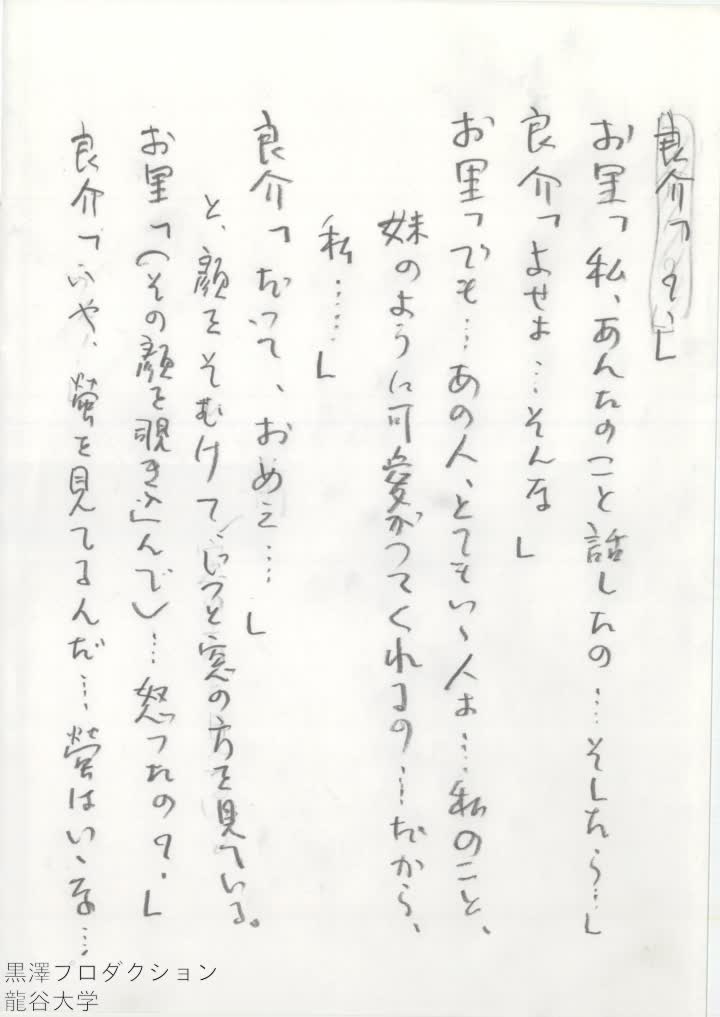 良介「？」
お里「私、あんたのこと話したの……そしたら…」
良介「よせよ…そんな」
お里「でも…あの人、とてもいゝ人よ…私のこと、
妹のように可愛がってくれるの……だから、
私……」
良介「だって、おめえ…」
と、顔をそむけて、じっと窓の方を見ている。
お里「（その顔を覗き込んで）…怒ったの？」
良介「いや、螢を見てるんだ…螢はいゝな…
黒澤プロダクション
龍谷大学